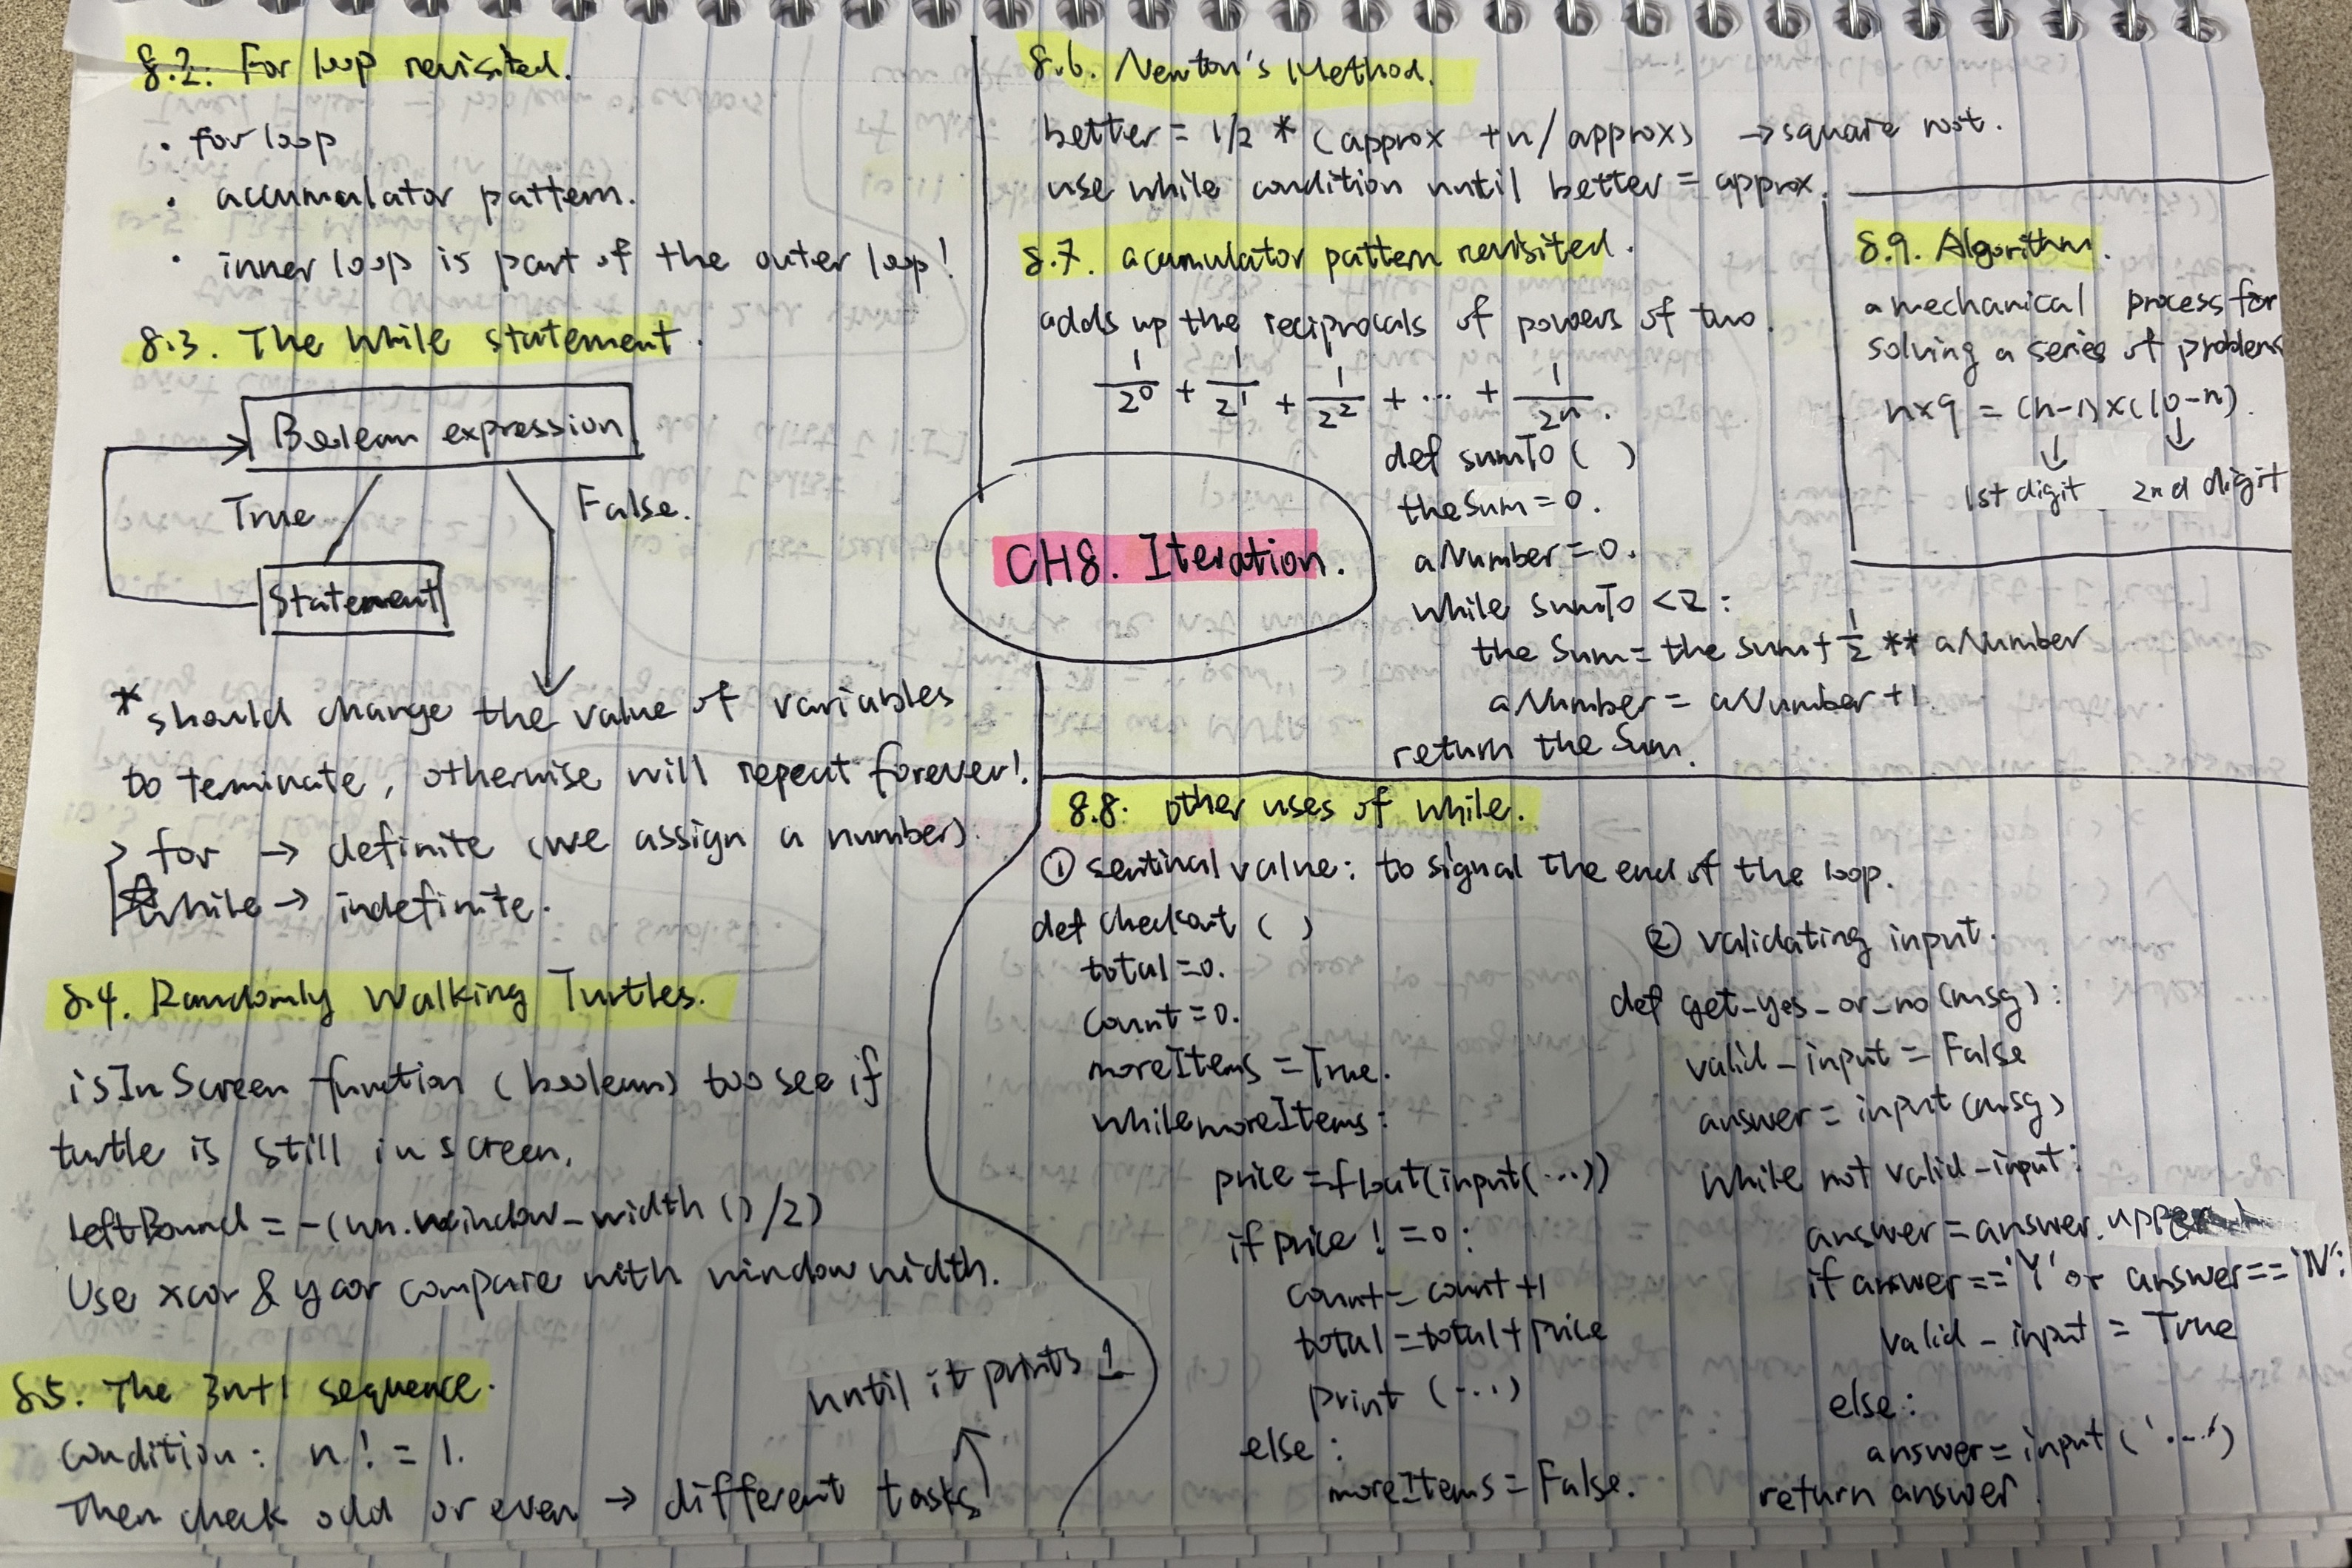 8.2. For loop revisited.
· for loop
· accumulator pattern.
· inner loop is part of the outer loop!
8.3. The While statement.
Boolean expression
True
False.
Statement
* should change the value of variables
to terminate, otherwise will repeat forever!
for → definite (we assign a number).
while → indefinite.
8.4. Randomly Walking Turtles.
isInScreen function (boolean) too see if
turtle is still in screen.
leftBound = -(wn.window_width()/2)
Use xcor & ycor compare with window width.
8.5. The 3n+1 sequence.
condition: n != 1.
Then check odd or even → different tasks
until it prints 1
CH8. Iteration.
8.6. Newton's Method.
better = 1/2 * (approx + n/approx) → square root.
use while condition until better = approx.
8.7. acumulator pattern revisited.
adds up the reciprocals of powers of two.
1/2⁰ + 1/2¹ + 1/2² + ... + 1/2ⁿ.
def sumTo ( )
theSum = 0.
aNumber = 0.
while sumTo < 2:
the Sum = the sum + 1/2 ** aNumber
aNumber = aNumber + 1
return the Sum.
8.9. Algorithm.
a mechanical process for
solving a series of problems
n×9 = (n-1)×(10-n).
↓ ↓
1st digit 2nd digit
8.8. other uses of while.
① sentinal value: to signal the end of the loop.
def checkout ( )
total = 0.
count = 0.
moreItems = True.
while moreItems:
price = float(input(...))
if price != 0:
count = count + 1
total = total + price
print (...)
else:
moreItems = False.
② validating input.
def get_yes_or_no(msg):
valid_input = False
answer = input(msg)
while not valid_input:
answer = answer.upper
if answer == 'Y' or answer == 'N':
valid_input = True
else:
answer = input('...')
return answer.